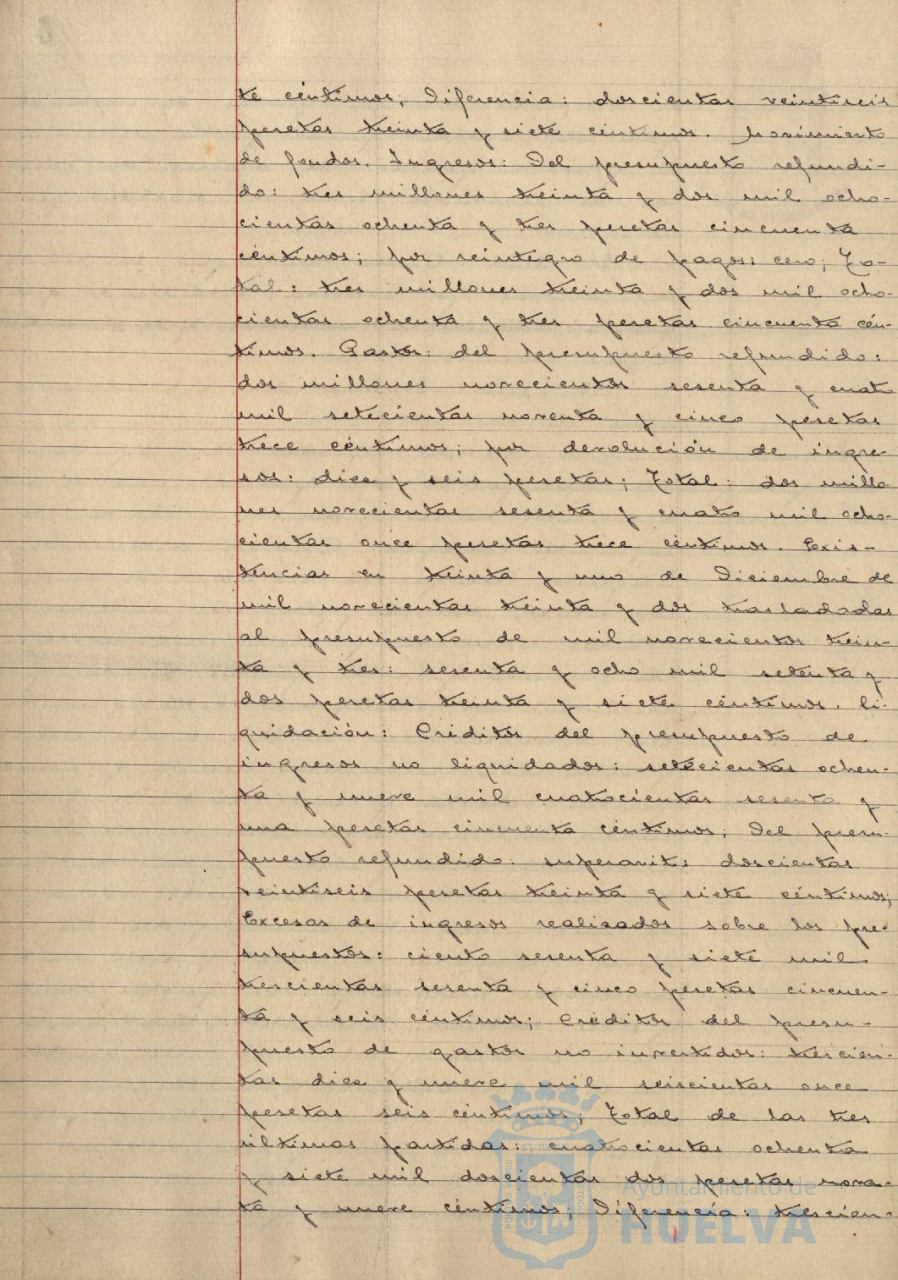 te céntimos; Diferencia: doscientas veintiseis
pesetas treinta y siete céntimos. Movimiento
de fondos. Ingresos: Del presupuesto refundi-
do: tres millones treinta y dos mil ocho-
cientas ochenta y tres pesetas cincuenta
céntimos; por reintegro de pagos: cero; To-
tal: tres millones treinta y dos mil ocho-
cientas ochenta y tres pesetas cincuenta cén-
timos. Gastos: del presupuesto refundido:
dos millones novecientos sesenta y cuatro
mil setecientas noventa y cinco pesetas
trece céntimos; por devolución de ingre-
sos: diez y seis pesetas; Total: dos millo-
nes novecientas sesenta y cuatro mil ocho-
cientas once pesetas trece céntimos. Exis-
tencias en treinta y uno de Diciembre de
mil novecientas treinta y dos trasladadas
al presupuesto de mil novecientos trein-
ta y tres: sesenta y ocho mil setenta y
dos pesetas treinta y siete céntimos. Li-
quidación: Créditos del presupuesto de
ingresos no liquidados: setecientas ochen-
ta y nueve mil cuatrocientas sesenta y
una pesetas cincuenta céntimos; Del presu-
puesto refundido. superavit: doscientas
veintiseis pesetas treinta y siete céntimos;
Excesos de ingresos realizados sobre los pre-
supuestos: ciento sesenta y siete mil
trescientas sesenta y cinco pesetas cincuen-
ta y seis céntimos; Créditos del presu-
puesto de gastos no invertidos: trescien-
tas diez y nueve mil seiscientas once
pesetas seis céntimos; Total de las tres
últimas partidas: cuatrocientas ochenta
y siete mil doscientas dos pesetas noven-
ta y nueve céntimos; Diferencia: trescien-
Ayuntamiento de
HUELVA